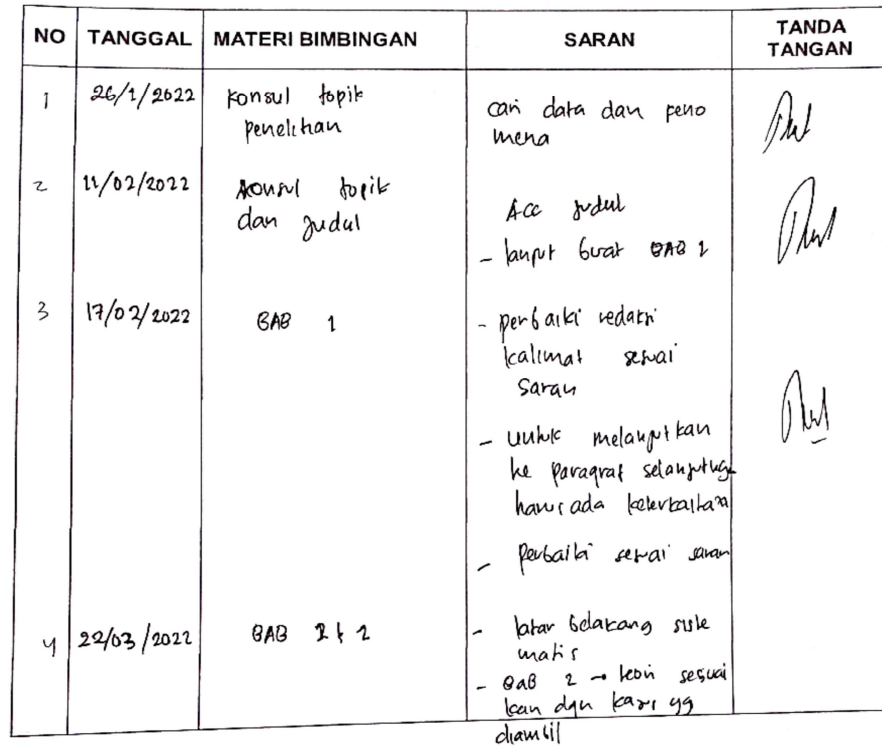 NO TANGGAL MATERI BIMBINGAN SARAN TANDA TANGAN
1 26/1/2022 Konsul topik penelitian
cari data dan feno
mena
2 11/02/2022 Konsul topik dan Judul
Acc Judul
- lanjut buat BAB 1
3 17/02/2022 BAB 1
- perbaiki redaksi
kalimat sesuai
saran
- untuk melanjutkan
ke paragraf selanjutnya
harus ada keterkaitan
- Perbaiki sesuai saran
4 22/03/2022 BAB 1 & 2
- latar belakang siste
matis
- BAB 2 → teori sesuai
kan dgn kasus yg
diambil